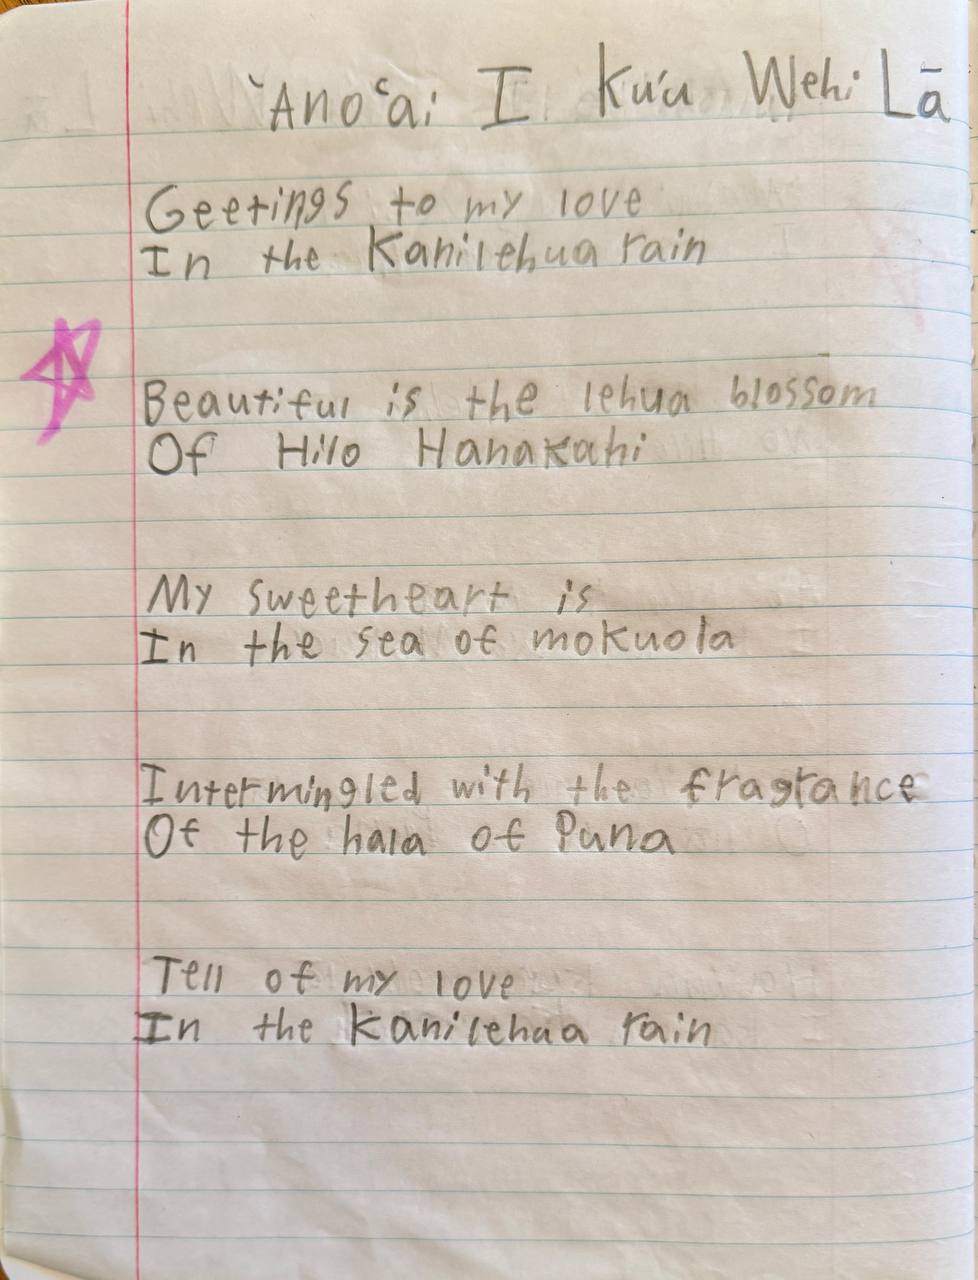 ʻAnoʻai I Kuʻu Wehi Lā
Geetings to my love
In the Kanilehua rain
Beautiful is the lehua blossom
Of Hilo Hanakahi
My sweetheart is
In the sea of mokuola
Intermingled with the fragrance
Of the hala of Puna
Tell of my love
In the kanilehua rain